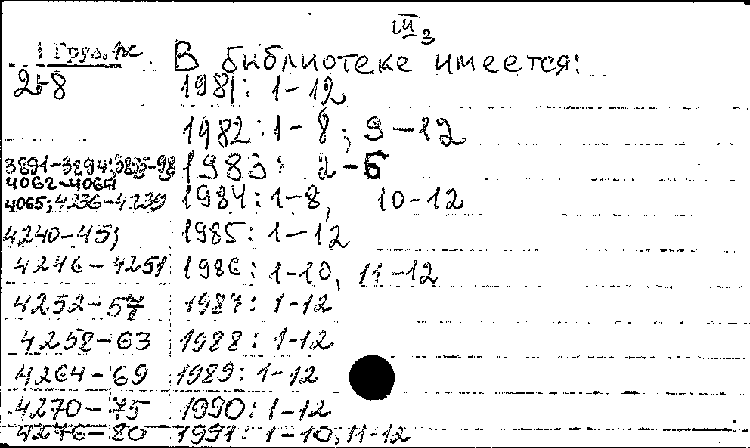 III 3
1 Груз. пс. В библиотеке имеется:
2-8 1981: 1-12
1982: 1-8; 9-12
3891-3894; 3895-98 1983: 2-6
4062-4064
4065; 4236-4239 1984: 1-8, 10-12
4240-45; 1985: 1-12
4246-4251 1986: 1-10, 11-12
4252-57 1987: 1-12
4258-63 1988: 1-12
4264-69 1989: 1-12
4270-75 1990: 1-12
4276-80 1991: 1-10, 11-12